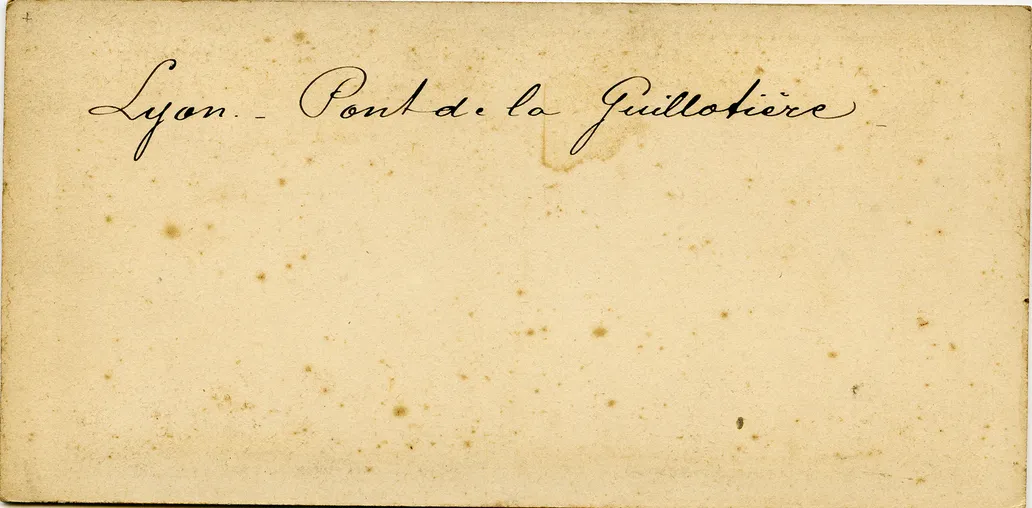 Lyon. - Pont de la Guillotière -